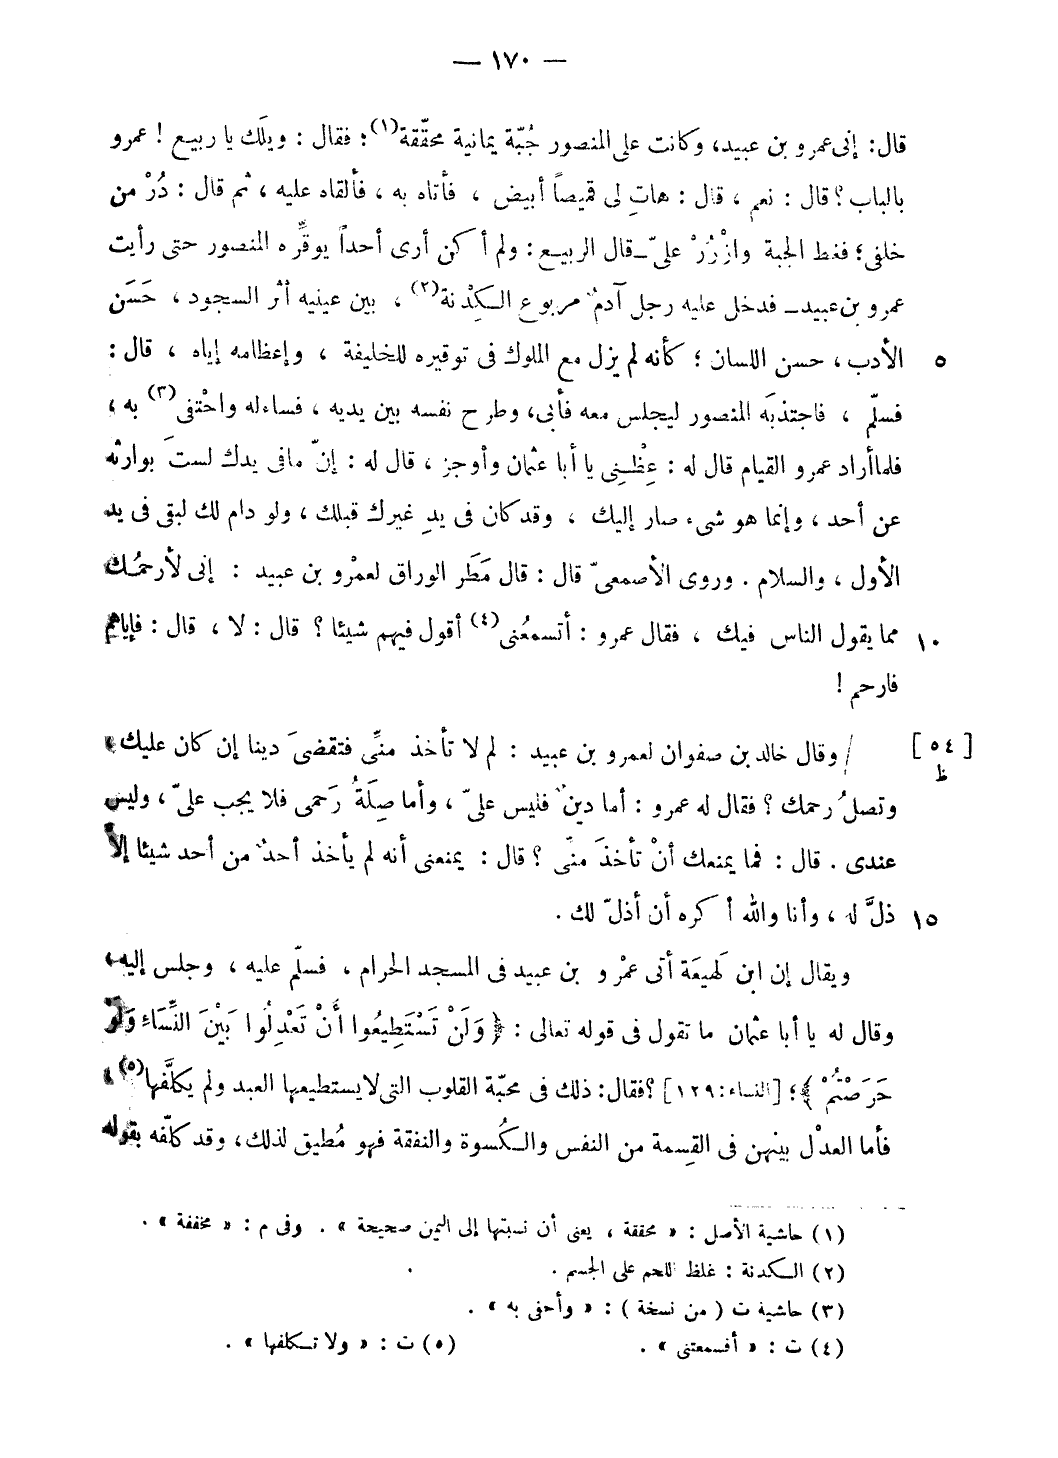 — ١٧٠ —
قال: إنى عمرو بن عبيد، وكانت على المنصور جُبّة يمانية محقّقة(١): فقال : ويلَك يا ربيع ! عمرو
بالباب؟ قال : نعم ، قال : هاتِ لى قميصاً أبيض ، فأتاه به ، فألقاه عليه ، ثم قال : دُرْ من
خلفى؛ فغط الجبة وازْرُرْ علىّ ــ قال الربيع : ولم أكن أرى أحداً يوقِّره المنصور حتى رأيت
عمرو بن عبيد ــ فدخل عليه رجل آدمُ مربوع الكِدْنة(٢) ، بين عينيه أثر السجود ، حَسَن
٥ الأدب ، حسن اللسان ؛ كأنه لم يزل مع الملوك فى توقيره للخليفة ، وإعظامه إياه ، قال :
فسلّم ، فاجتذبَه المنصور ليجلس معه فأبى، وطرح نفسه بين يديه ، فساءله واحْتفى(٣) به ،
فلما أراد عمرو القيام قال له : عِظْنِى يا أبا عثمان وأوجز ، قال له : إنّ ما فى يدك لستَ بوارثه
عن أحد ، وإنما هو شىء صار إليك ، وقد كان فى يدِ غيرك قبلك ، ولو دام لك لبقى فى يد
الأول ، والسلام . وروى الأصمعىّ قال : قال مَطَر الوراق لعمْرو بن عبيد : إنى لأرحمُك
١٠ مما يقول الناس فيك ، فقال عمرو : أتسمعُنى(٤) أقول فيهم شيئا ؟ قال : لا ، قال : فإياهم
فارحم !
[ ٥٤ ظ ] / وقال خالد بن صفوان لعمرو بن عبيد : لم لا تأخذ منِّى فتقضىَ دينا إن كان عليك ،
وتصلُ رحمك ؟ فقال له عمرو : أما دينٌ فليس علىّ ، وأما صِلَةُ رَحمى فلا يجب علىّ ، وليس
عندى . قال : فما يمنعك أنْ تأخذَ منّى ؟ قال : يمنعنى أنه لم يأخذ أحدٌ من أحد شيئا إلاّ
١٥ ذلَّ له ، وأنا والله أكره أن أذلّ لك .
ويقال إن ابن لَهيعَة أتى عمْرو بن عبيد فى المسجد الحرام ، فسلّم عليه ، وجلس إليه ،
وقال له يا أبا عثمان ما تقول فى قوله تعالى : ﴿ وَلَنْ تَسْتَطِيعُوا أَنْ تَعْدِلُوا بَيْنَ النِّسَاءِ وَلَوْ
حَرَصْتُمْ ﴾؛ [النساء: ١٢٩] ؟فقال: ذلك فى محبّة القلوب التى لا يستطيعها العبد ولم يكلَّفها(٥) ،
فأما العدْل بينهن فى القِسمة من النفس والكُسوة والنفقة فهو مُطيق لذلك، وقد كلّفه بقوله
(١) حاشية الأصل : « محققة ، يعنى أن نسبتها إلى اليمن صحيحة » . وفى م : « مخففة » .
(٢) الكدنة : غلظ اللحم على الجسم .
(٣) حاشية ت ( من نسخة ) : « وأحفى به » .
(٤) ت : « أفسمعتنى » . (٥) ت : « ولا تكلفها » .